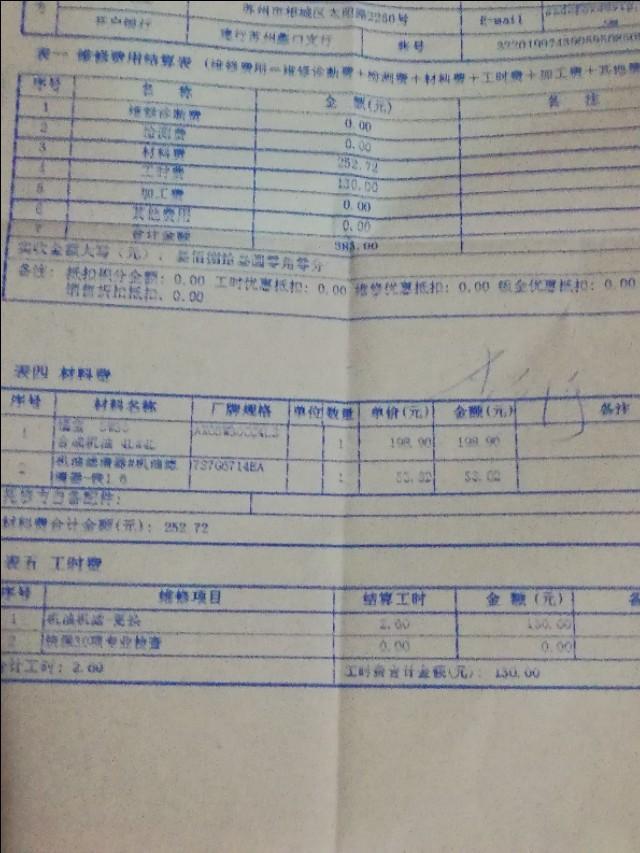 苏州市相城区太阳路2260号 E-mail
开户银行 建行苏州蠡口支行 账号
表一 维修费用结算表 (维修费用=维修诊断费+检测费+材料费+工时费+加工费+其他费
序号 名 称 金 额(元) 备 注
1 维修诊断费 0.00
2 检测费 0.00
3 材料费 252.72
4 工时费 130.00
5 加工费 0.00
6 其他费用 0.00
7 合计金额 383.00
实收金额大写(元): 叁佰捌拾叁圆零角零分
备注: 抵扣积分金额: 0.00 工时优惠抵扣: 0.00 维修优惠抵扣: 0.00 钣金优惠抵扣: 0.00
销售折扣抵扣: 0.00
表四 材料费
序号 材料名称 厂牌规格 单位 数量 单价(元) 金额(元) 备注
1 5W30 1 198.90 198.90
合成机油 4L*4L
2 机油滤清器#机油滤 7S7G6714EA 1 53.82 53.82
清器-俊1.6
托修方自备配件:
材料费合计金额(元): 252.72
表五 工时费
序号 维修项目 结算工时 金 额(元)
1 机油机滤-更换 2.60 130.00
2 30项专业检查 0.00 0.00
合计工时: 2.60 工时费合计金额(元): 130.00